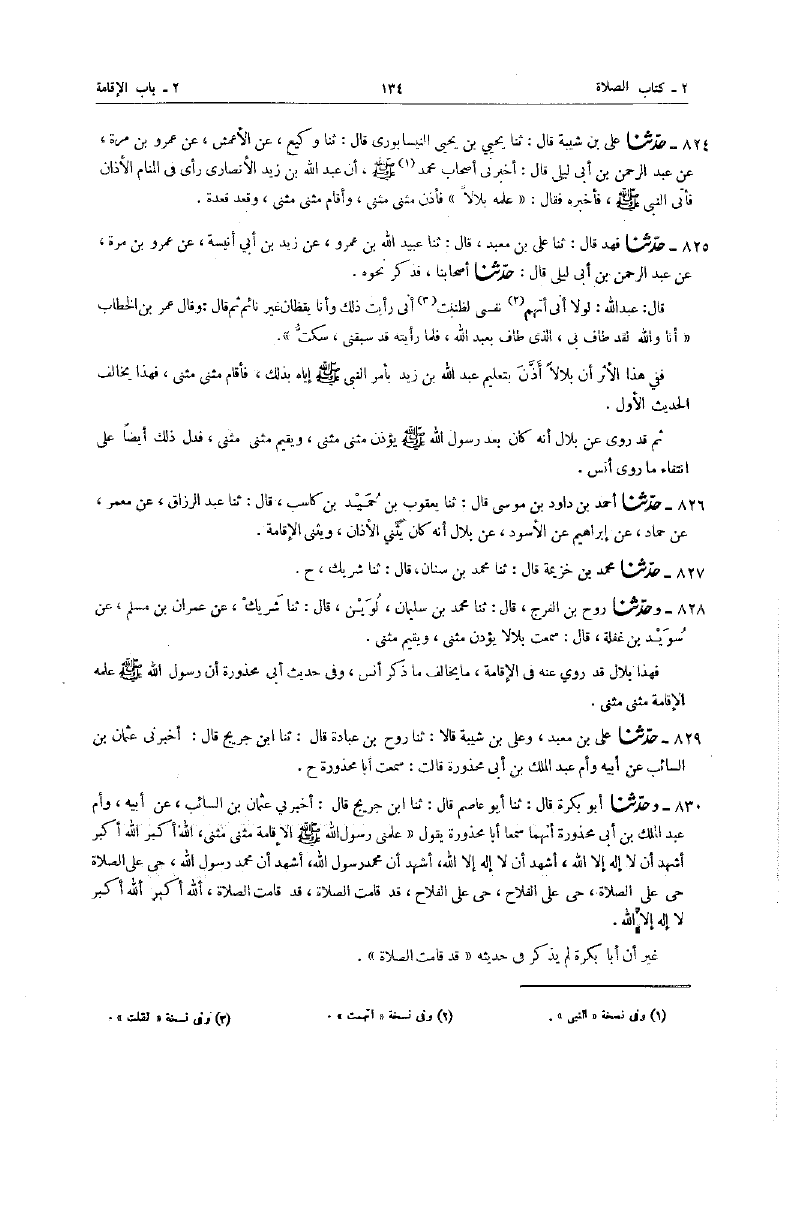 ٢ - كتاب الصلاة ١٣٤ ٢ - باب الإقامة
٨٢٤ - حدّثنا على بن شيبة قال : ثنا يحيى بن يحيى النيسابورى قال : ثنا وكيع ، عن الأعمش ، عن عمرو بن مرة ،
عن عبد الرحمن بن أبى ليلى قال : أخبرنى أصحاب محمد (١) ﷺ ، أن عبد الله بن زيد الأنصارى رأى فى المنام الأذان
فأتى النبى ﷺ ، فأخبره فقال : « علمه بلالاً » فأذن مثنى مثنى ، وأقام مثنى مثنى ، وقعد قعدة .
٨٢٥ - حدّثنا فهد قال : ثنا على بن معبد ، قال : ثنا عبيد الله بن عمرو ، عن زيد بن أبي أنيسة ، عن عمرو بن مرة ،
عن عبد الرحمن بن أبى ليلى قال : حدّثنا أصحابنا ، فذكر نحوه .
قال: عبدالله : لولا أنى أتهم(٢) نفسى لظننت(٣) أنى رأيت ذلك وأنا يقظان غير نائم ثم قال : وقال عمر بن الخطاب
« أنا والله لقد طاف بى ، الذى طاف بعبد الله ، فلما رأيته قد سبقنى ، سكتُّ ».
ففى هذا الأثر أن بلالاً أذَّنَ بتعليم عبد الله بن زيد بأمر النبى ﷺ إياه بذلك ، فأقام مثنى مثنى ، فهذا يخالف
الحديث الأول .
ثم قد روى عن بلال أنه كان بعد رسول الله ﷺ يؤذن مثنى مثنى ، ويقيم مثنى مثنى ، فدل ذلك أيضاً على
انتفاء ما روى أنس .
٨٢٦ - حدّثنا أحمد بن داود بن موسى قال : ثنا يعقوب بن حُمَيْـد بن كاسب ، قال : ثنا عبد الرزاق ، عن معمر ،
عن حماد ، عن إبراهيم عن الأسود ، عن بلال أنه كان يُثَنِّي الأذان ، ويثنى الإقامة .
٨٢٧ - حدّثنا محمد بن خزيمة قال : ثنا محمد بن سنان، قال : ثنا شريك ، ح .
٨٢٨ - وحدّثنا روح بن الفرج ، قال : ثنا محمد بن سليمان ، لُوَيْـن ، قال : ثنا شريكٌ ، عن عمران بن مسلم ، عن
سُوَيْـد بن غفلة ، قال : سمعت بلالا يؤذن مثنى ، ويقيم مثنى .
فهذا بلال قد روي عنه فى الإقامة ، ما يخالف ما ذكر أنس ، وفى حديث أبى محذورة أن رسول الله ﷺ علمه
الإقامة مثنى مثنى .
٨٢٩ - حدّثنا على بن معبد ، وعلى بن شيبة قالا : ثنا روح بن عبادة قال : ثنا ابن جريج قال : أخبرنى عثمان بن
السائب عن أبيه وأم عبد الملك بن أبى محذورة قالت : سمعت أبا محذورة ح .
٨٣٠ - وحدّثنا أبو بكرة قال : ثنا أبو عاصم قال : ثنا ابن جريج قال : أخبرني عثمان بن السائب ، عن أبيه ، وأم
عبد الملك بن أبي محذورة أنهما سمعا أبا محذورة يقول « علمنى رسول الله ﷺ الإقامة مثنى مثنى، الله أكبر الله أكبر
أشهد أن لا إله إلا الله ، أشهد أن لا إله إلا الله، أشهد أن محمد رسول الله، أشهد أن محمد رسول الله ، حى على الصلاة
حى على الصلاة ، حى على الفلاح ، حى على الفلاح ، قد قامت الصلاة ، قد قامت الصلاة ، ألله أكبر ألله أكبر
لا إله إلا الله .
غير أن أبا بكرة لم يذكر فى حديثه « قد قامت الصلاة » .
(١) وفى نسخة « النبى » . (٢) وفى نسخة « اتهمت » . (٣) وفى نسخة « لقلت » .